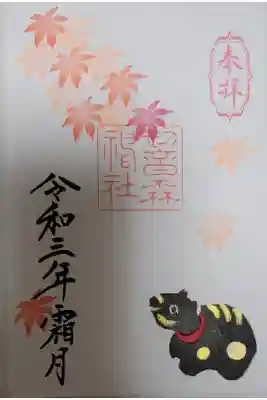 奉拝
神社
令和三年霜月